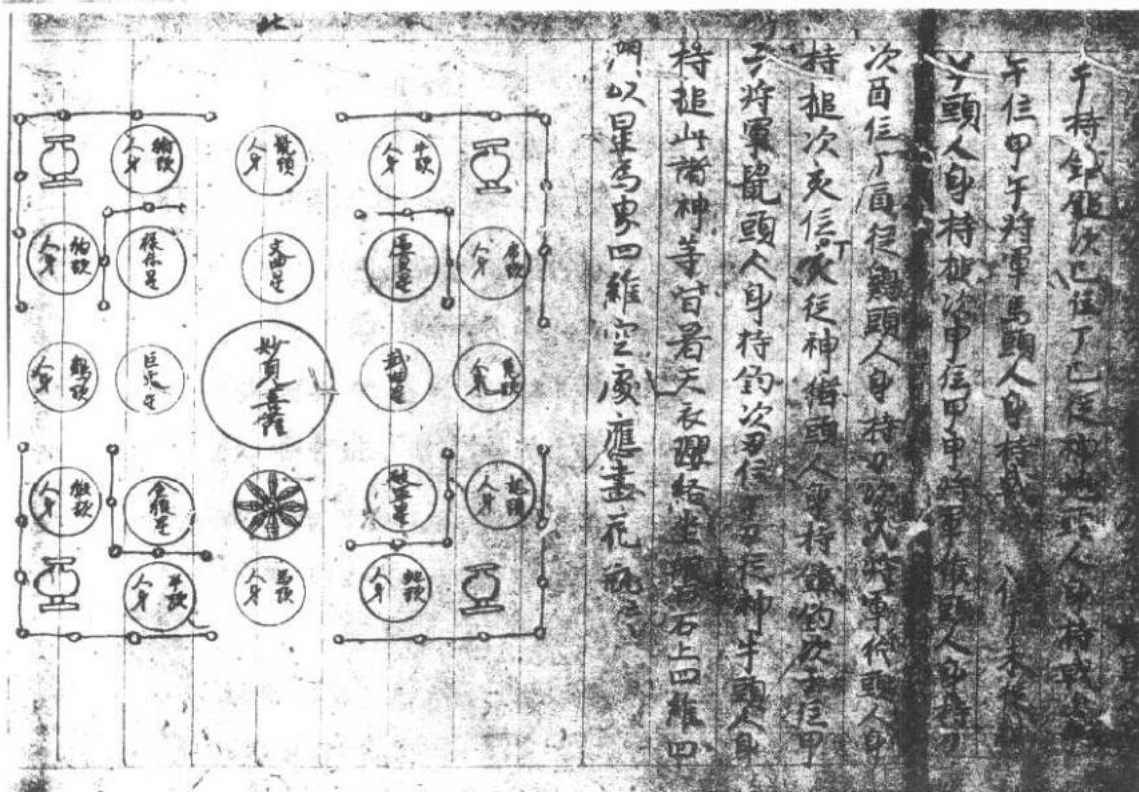 持鉄鎚次巳位丁巳従神 人身持戟
午位甲午将軍馬頭人身持 位丁未従神
羊頭人身持槌次申位甲申将軍猴頭人身持刀
次酉位丁酉従鷄頭人身持刀次戌将軍狗頭人身
持槌次亥位丁亥従神猪頭人身持鉄鈎次子位甲
子将軍鼠頭人身持鈎次丑位丁丑従神牛頭人身
持槌此諸神等皆着天衣瓔珞坐 石上四維四
門以星為界四維空處應畫花瓶云々
北
牛頭人身
鼠頭人身
猪頭人身
虎頭人身
文曲星
禄存星
狗頭人身
兎頭人身
武曲星
妙見菩薩
巨門星
鷄頭人身
龍頭人身
破軍星
貪狼星
猴頭人身
蛇頭人身
馬頭人身
羊頭人身